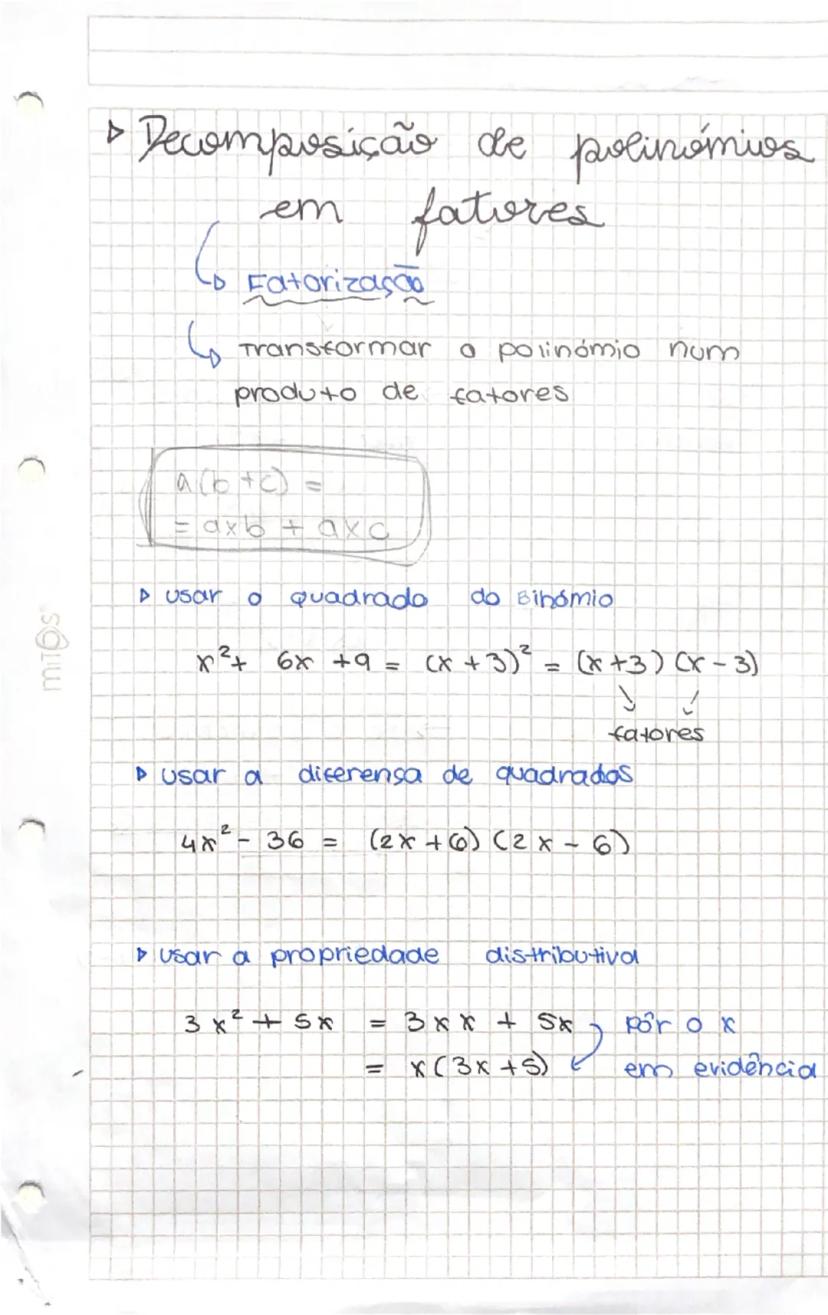 ▷ Decomposição de polinómios
em fatores
↳ Fatorização
↳ Transformar o polinómio num
produto de fatores
a(b+c) =
= axb + axc
▷ usar o quadrado do Binómio
x² + 6x + 9 = (x + 3)² = (x + 3) (x - 3)
fatores
▷ usar a diferensa de quadrados
4x² - 36 = (2x + 6) (2x - 6)
▷ usar a propriedade distributiva
3x² + 5x = 3xx + 5x pôr o x
= x(3x + 5) em evidência
MITOS